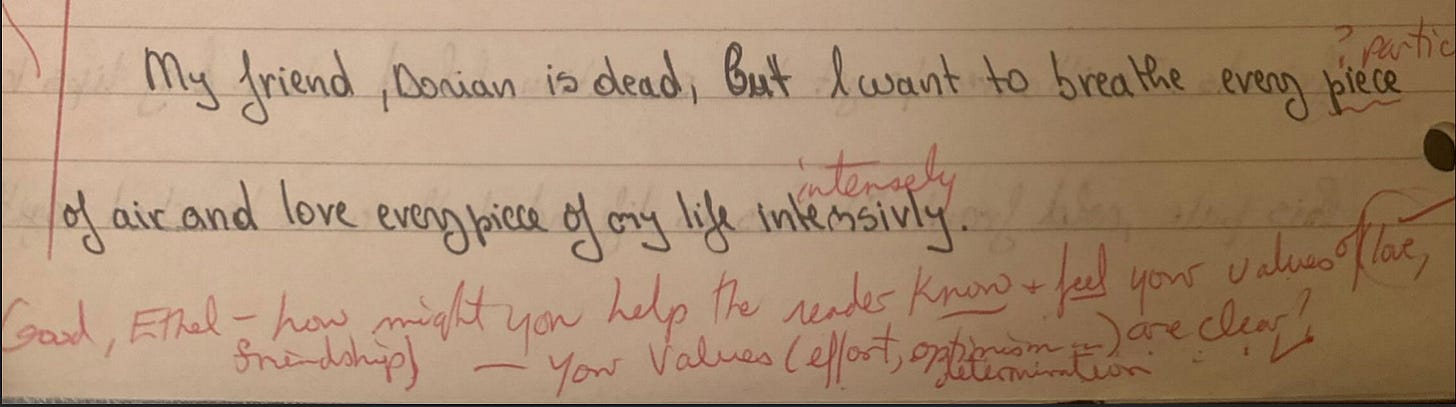 ? partic
My friend, Dorian is dead, But I want to breathe every piece
intensely
of air and love every piece of my life intensivly.
Good, Ethel - how might you help the reader know + feel your values of love,
friendship) — your values (effort, optimism -) are clear!
determination